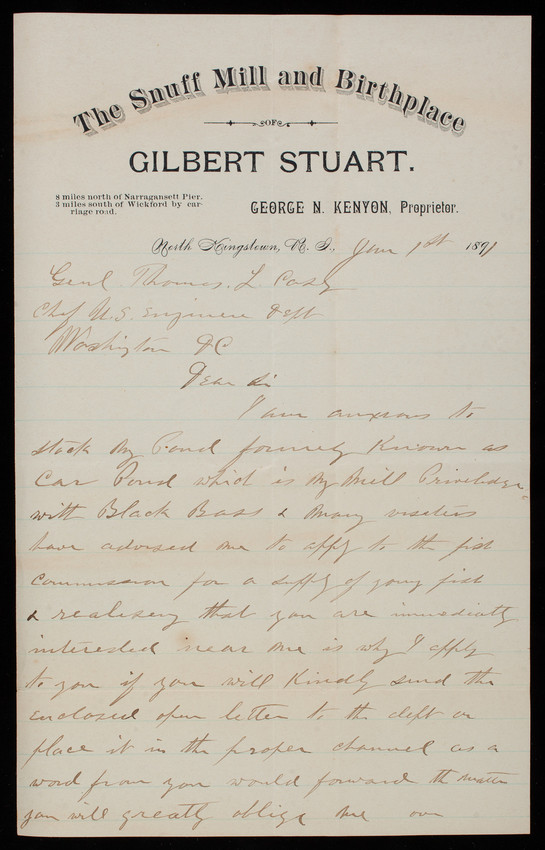 The Snuff Mill and Birthplace
OF
GILBERT STUART.
8 miles north of Narragansett Pier.
3 miles south of Wickford by car-
riage road.
GEORGE N. KENYON, Proprietor.
North Kingstown, R. I., June 1st 1891
Genl Thomas. L Casey
Chef U.S. Engineer Dept
Washington DC
Dear Sir
I am anxious to
stock My Pond formerly Known as
Car Pond which is My Mill Priveledge
with Black Bass & Many visitors
have advised me to apply to the fish
Commission for a supply of young fish
& realising that you are immediatly
interested near me is why I apply
to you if you will Kindly send the
enclosed open letter to the dept or
place it in the proper channel as a
word from you would forward the matter
you will greatly oblige me